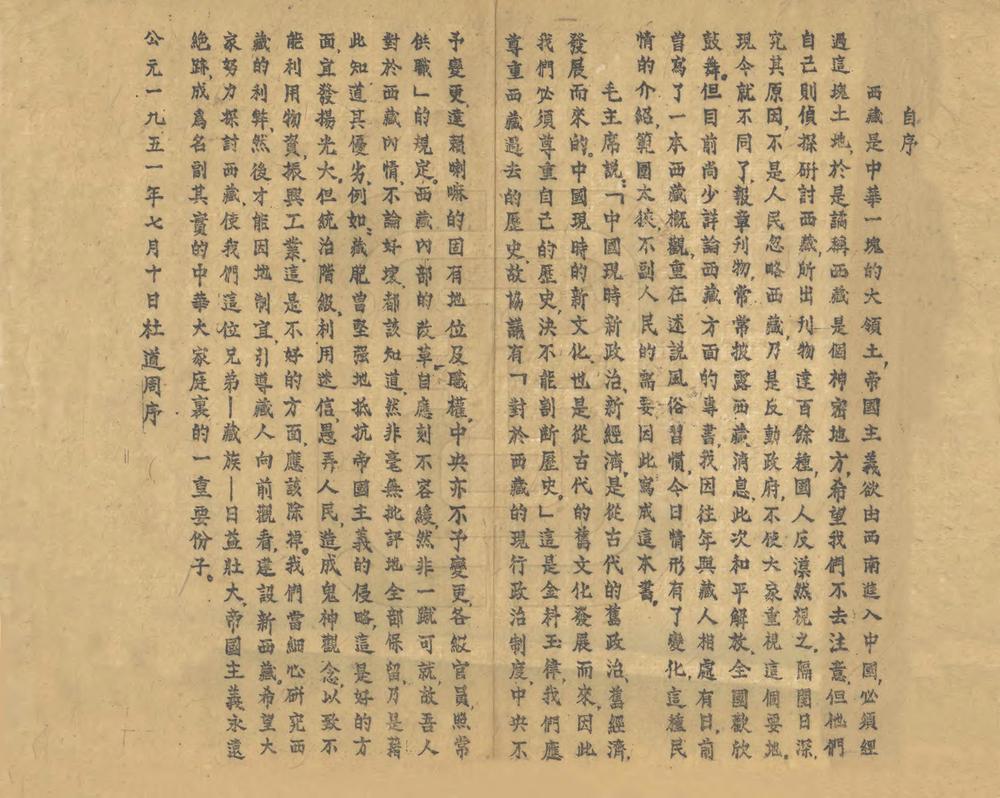 自序
西藏是中華一塊的大領土，帝國主義欲由西南進入中國，必須經
過這塊土地，於是譌稱西藏是個神密地方，希望我們不去注意，但他們
自己則偵探研討西藏，所出刊物達百餘種，國人反漠然視之。隔閡日深，
究其原因，不是人民忽略西藏，乃是反動政府，不使大家重視這個要地。
現今就不同了，報章刊物，常常披露西藏消息，此次和平解放，全國歡欣
鼓舞。但目前尚少詳論西藏方面的專書，我因往年與藏人相處有日，前
曾寫了一本西藏概觀，重在述說風俗習慣，今日情形有了變化，這種民
情的介紹，範圍太狹，不副人民的需要，因此寫成這本書。
毛主席說：「中國現時新政治，新經濟，是從古代的舊政治，舊經濟，
發展而來的。中國現時的新文化，也是從古代的舊文化發展而來，因此
我們必須尊重自己的歷史，決不能割斷歷史。」這是金科玉律，我們應
尊重西藏過去的歷史，故協議有「對於西藏的現行政治制度，中央不
予變更，達賴喇嘛的固有地位及職權，中央亦不予變更，各級官員，照常
供職」的規定。西藏內部的改革，自應刻不容緩，然非一蹴可就，故吾人
對於西藏內情，不論好壞，都該知道，然非毫無批評地全部保留，乃是藉
此知道其優劣，例如：藏胞曾堅强地抵抗帝國主義的侵略，這是好的方
面，宜發揚光大。但統治階級，利用迷信，愚弄人民，造成鬼神觀念，以致不
能利用物資，振興工業，這是不好的方面，應該除掉。我們當細心研究西
藏的利弊，然後才能因地制宜，引導藏人向前觀看，建設新西藏，希望大
家努力探討西藏，使我們這位兄弟—藏族—日益壯大，帝國主義永遠
絕跡，成爲名副其實的中華大家庭裏的一重要份子。
公元一九五一年七月十日杜道周序